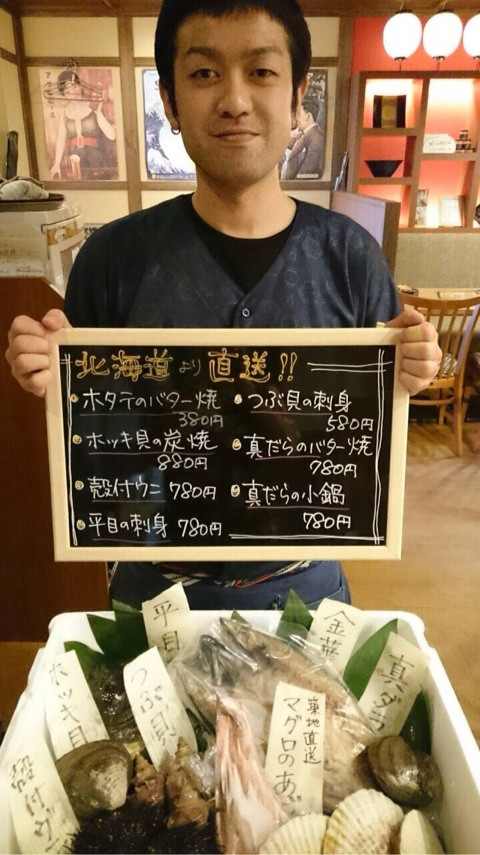 北海道より直送!!
ホタテのバター焼
380円
ホッキ貝の炭焼
880円
殻付ウニ 780円
平目の刺身 780円
つぶ貝の刺身
580円
真だらのバター焼
780円
真だらの小鍋
780円
平目
金華
真ダラ
ホッキ貝
つぶ貝
築地直送
マグロのあご
殻付ウニ